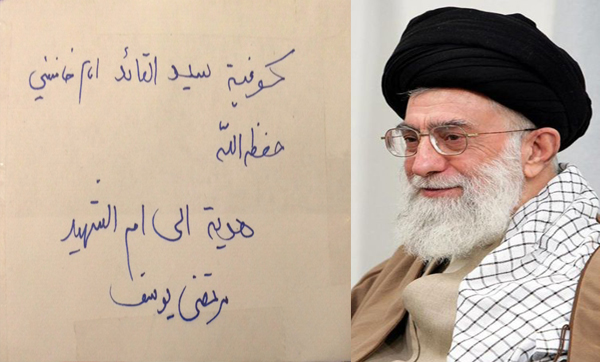 كوفية سيد القائد امام خامنئي
حفظه الله
هدية الى ام الشهيد
مرتضى يوسف